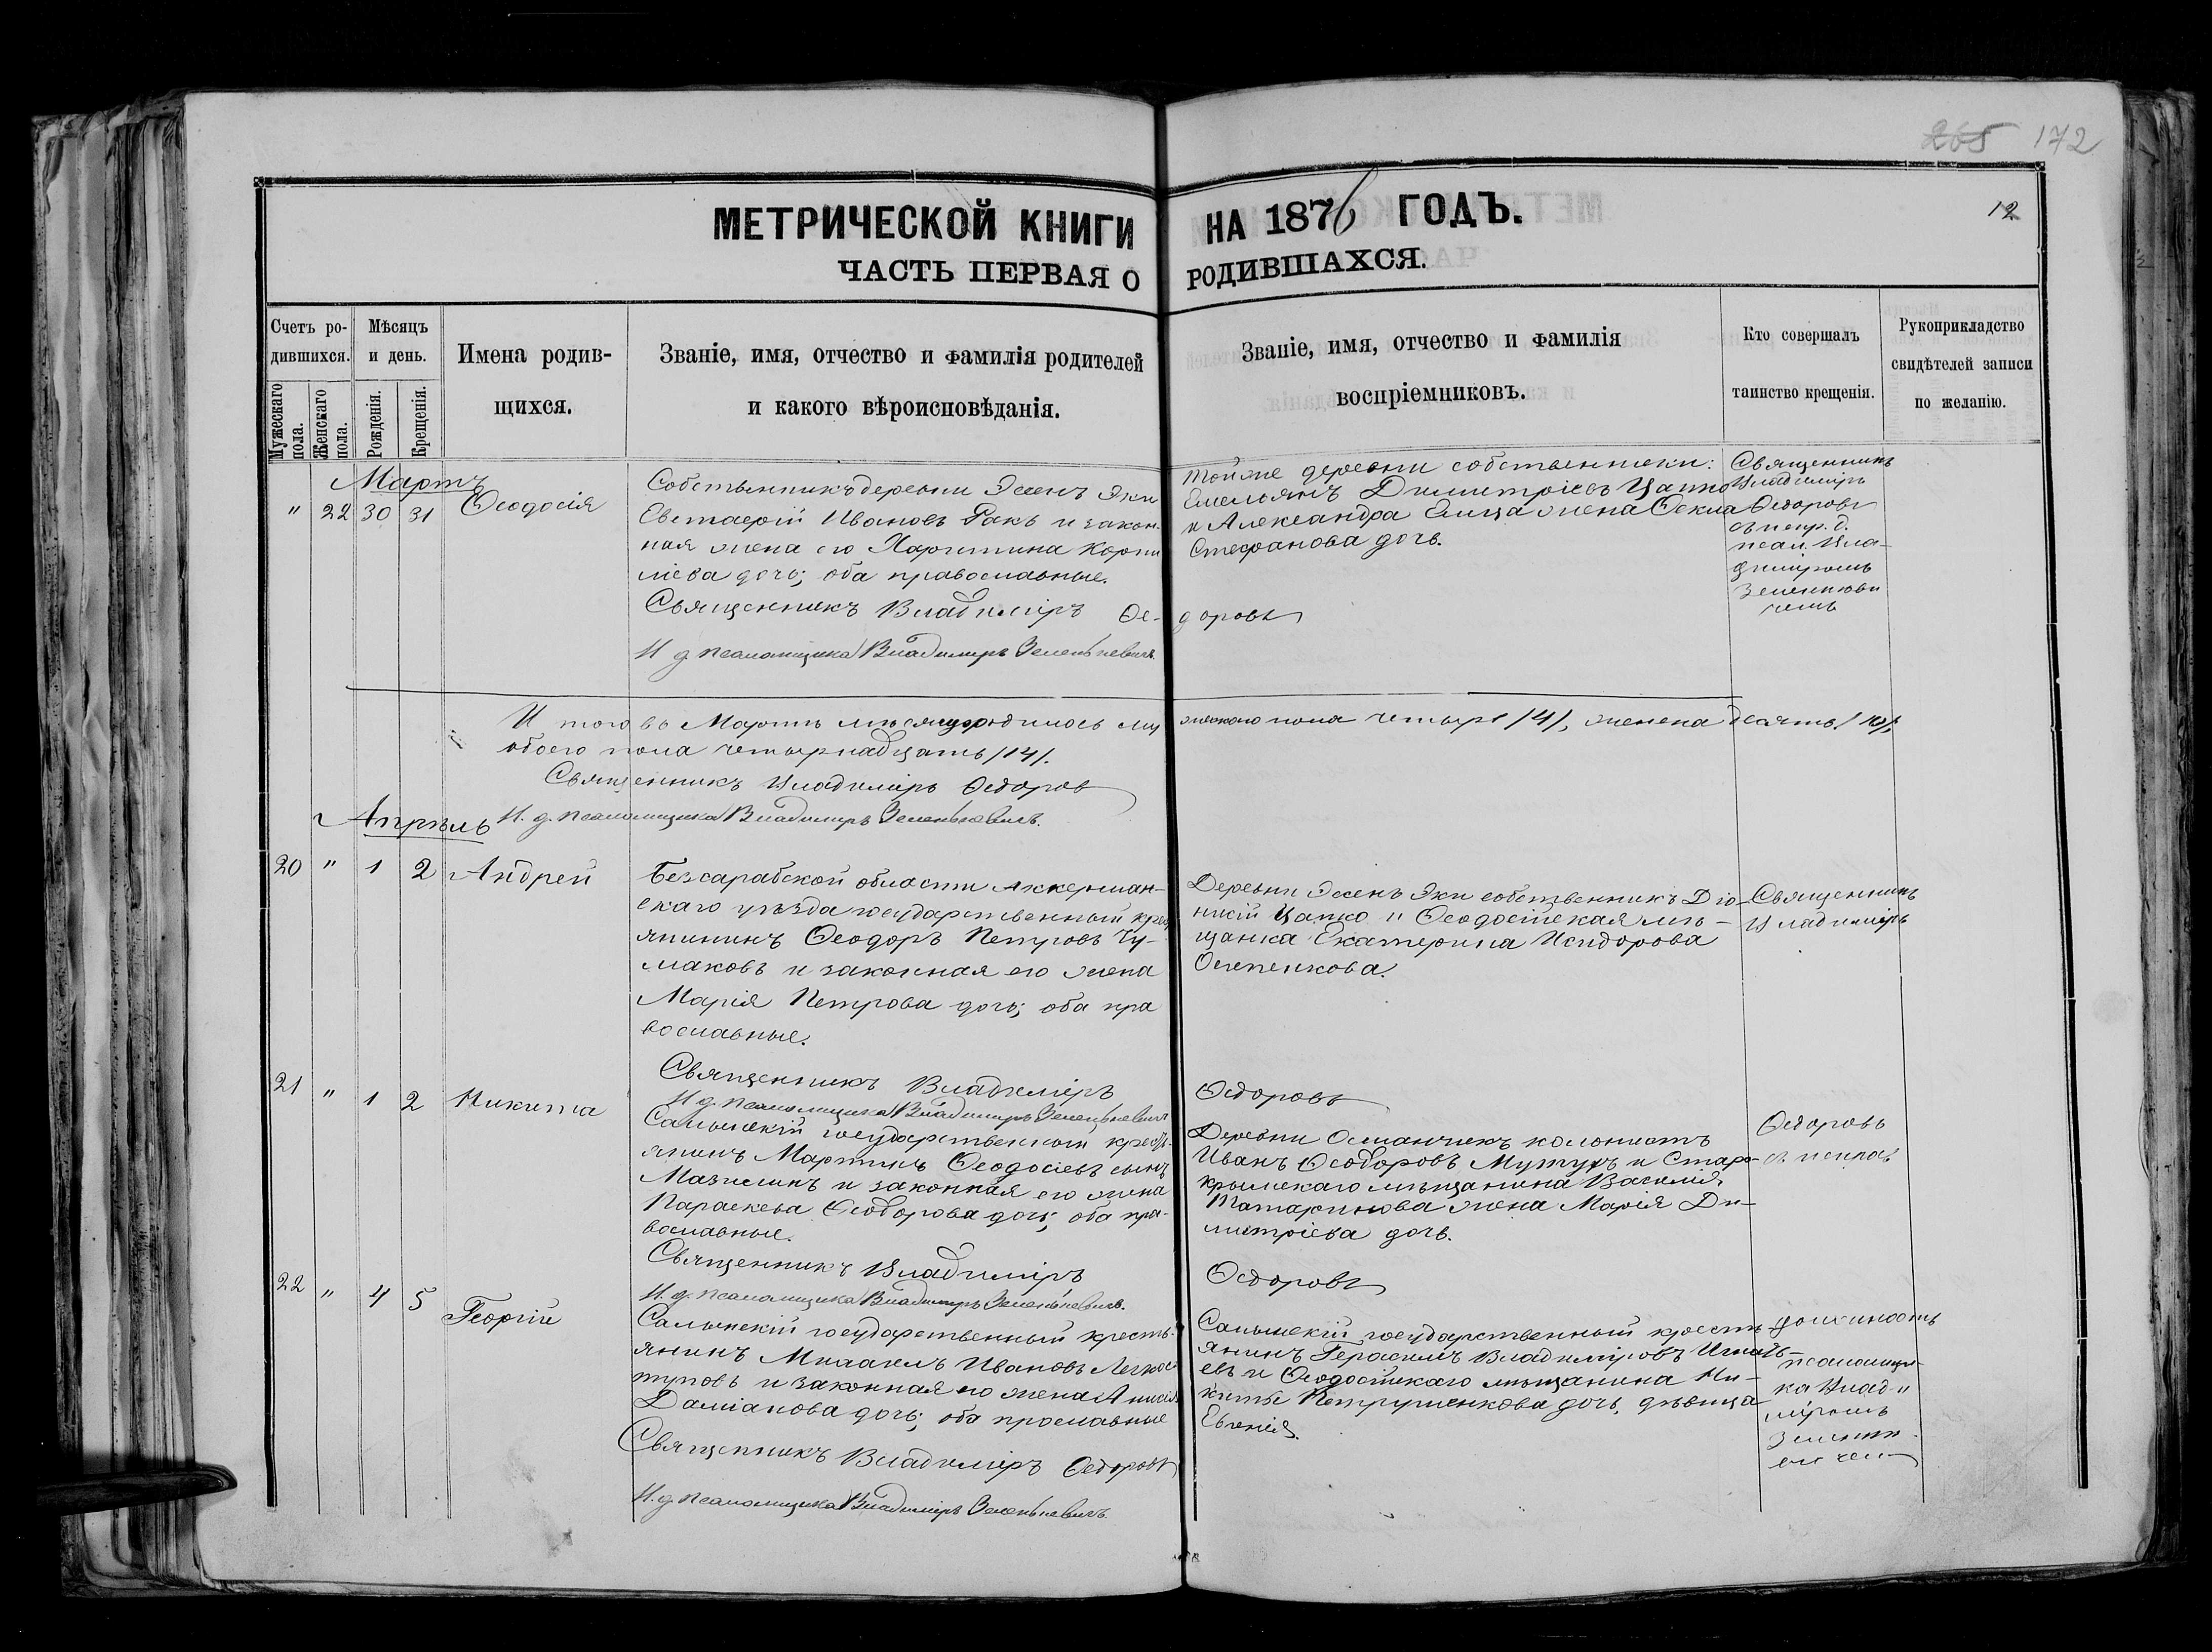 265 172
МЕТРИЧЕСКОЙ КНИГИ НА 1876 ГОДЪ.
12
ЧАСТЬ ПЕРВАЯ О РОДИВШАХСЯ.
Счетъ родившихся.
Мужескаго пола.
Женскаго пола.
Мѣсяцъ и день.
Рожденія.
Крещенія.
Имена родившихся.
Званіе, имя, отчество и фамилія родителей
и какого вѣроисповѣданія.
Званіе, имя, отчество и фамилія
воспріемниковъ.
Кто совершалъ
таинство крещенія.
Рукоприкладство
свидѣтелей записи
по желанію.
Мартъ
" 22 30 31 Ѳеодосія
Собственникъ деревни Эсенъ Эки
Евстаѳій Ивановъ Ракъ и закон-
ная жена его Харитина Корни
ліева дочь; оба православные.
Священникъ Владиміръ Ѳе-доровъ
И д псаломщика Владимиръ Зеленкевичъ.
Той же деревни собственники:
Емельянъ Димитріевъ Цапко
и Александра жена Ѳекла
Стефанова дочь.
Священникъ
Владиміръ
Ѳедоровъ
съ испр. д.
псал. Вла-
диміромъ
Зеленкеви
чемъ
И того въ Мартѣ мѣсяцѣ родилось му жескаго пола четыре /4/, женска десять /10/,
обоего пола четырнадцать /14/.
Священникъ Владиміръ Ѳедоров
И. д. псаломщика Владимиръ Зеленкевичъ.
Апрѣль
20 " 1 2 Андрей
Безсарабской области Аккерман-
скаго уѣзда государственный крест
янинъ Ѳеодоръ Петровъ Чу-
маковъ и законная его жена
Марія Петрова дочь; оба пра
вославные.
Священникъ Владиміръ Ѳедоровъ
И. д. псаломщика Владимиръ Зеленкевичъ
Деревни Эсенъ Эки собственникъ Діо-
нисій Цапко и Ѳеодосійская мѣ-
щанка Екатерина Исидорова
Осипенкова.
Священникъ
Владиміръ
21 " 1 2 Никита
Салынскій государственный кресть-
янинъ Мартинъ Ѳеодосіевъ сынъ
Мазикинъ и законная его жена
Параскева Ѳеодорова дочь; оба пра-
вославные.
Священникъ Владиміръ Ѳедоровъ
И. д. псаломщика Владимиръ Зеленкевичъ.
Деревни Османчикъ колонистъ
Иванъ Ѳеодоровъ и Старо-
крымскаго мѣщанина Василія
Татаринова жена Марія Ди-
митріева дочь.
Ѳедоровъ
съ исправ
22 " 4 5 Георгій
Салынскій государственный кресть-
янинъ Михаилъ Ивановъ Легкос
туповъ и законная его жена Анисія
Даміанова дочь; оба прославные
Священникъ Владиміръ Ѳедоровъ
И. д. псаломщика Владиміръ Зеленкевичъ.
Салынскій государственный кресть-
янинъ Герасимъ Владиміровъ Игнать-
евъ и Ѳеодосійскаго мѣщанина Ни-
киты Петрушенкова дочь, дѣвица
Евгенія.
должность
псаломщи-
ка Влади
міромъ